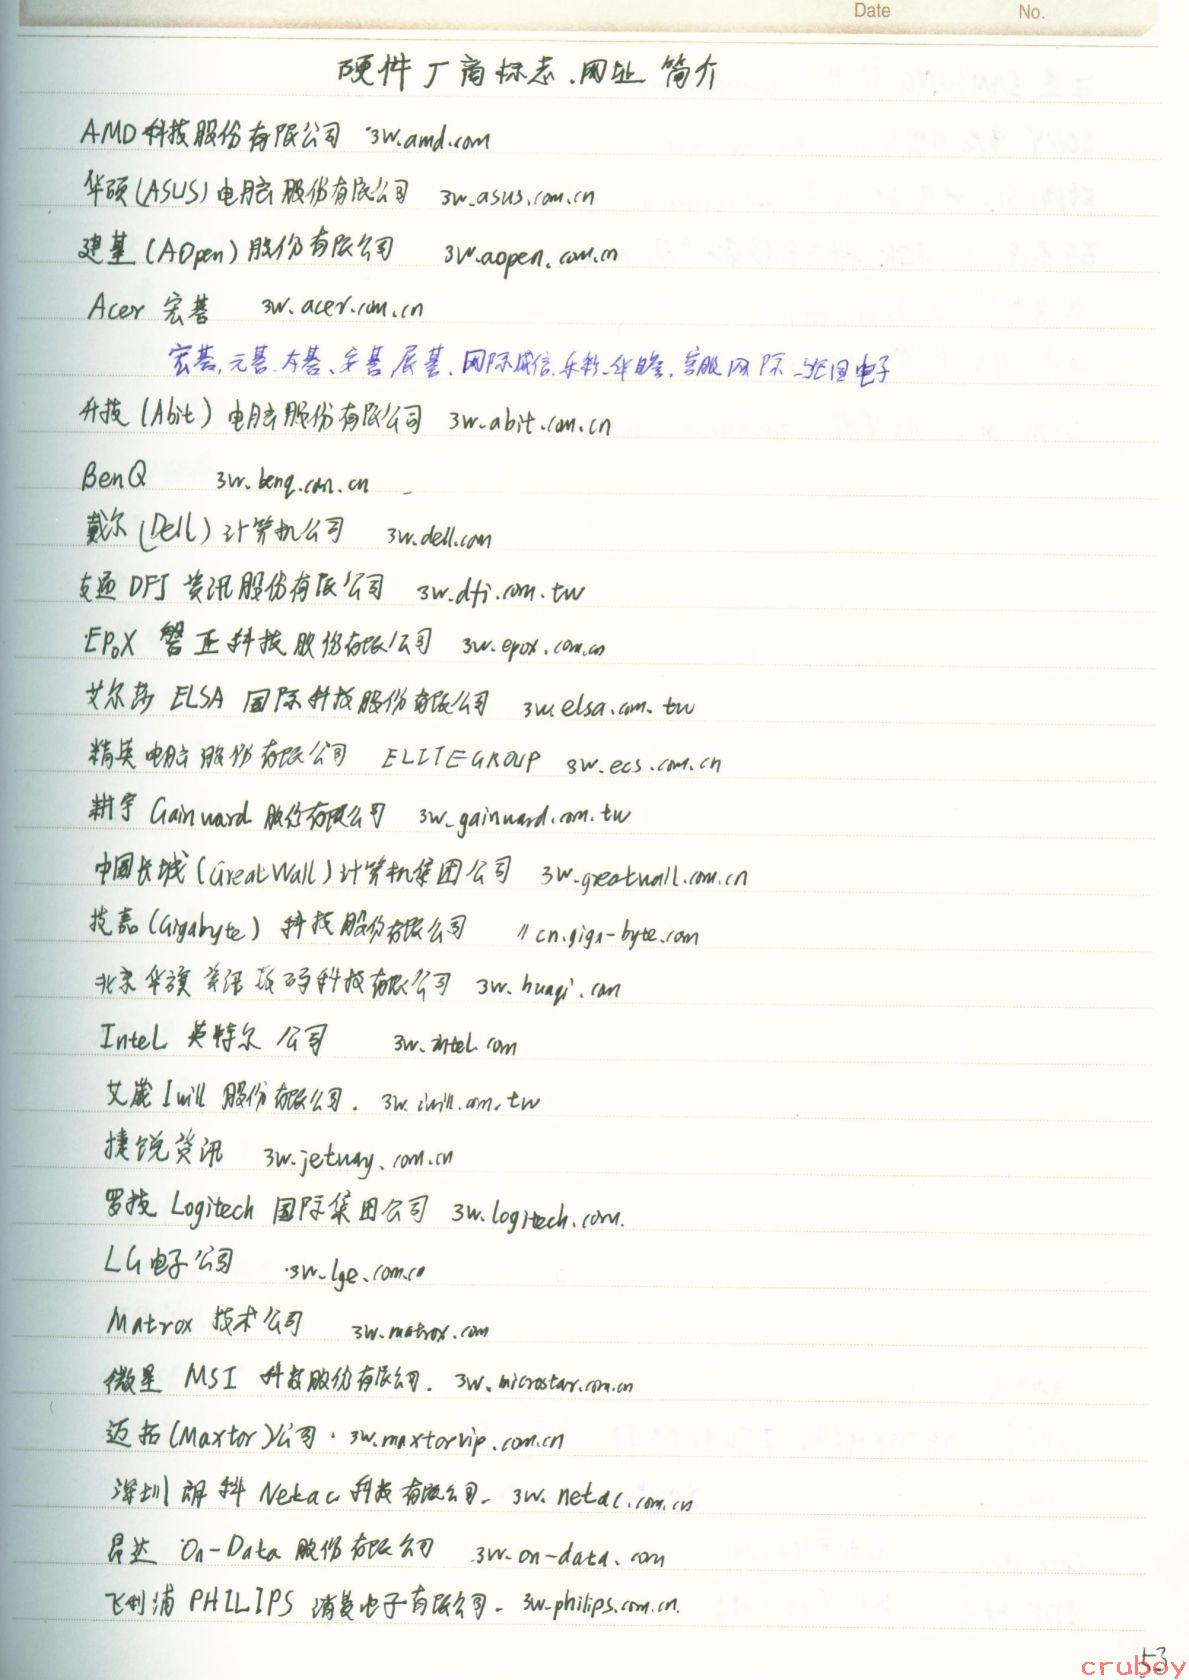 Date No.
硬件厂商标志.网址 简介
AMD科技股份有限公司 3w.amd.com
华硕(ASUS)电脑股份有限公司 3w.asus.com.cn
建基(AOpen)股份有限公司 3w.aopen.com.cn
Acer 宏碁 3w.acer.com.cn
升技(Abit)电脑股份有限公司 3w.abit.com.cn
BenQ 3w.benq.com.cn
戴尔(Dell)计算机公司 3w.dell.com
友通DFI 资讯股份有限公司 3w.dfi.com.tw
EPoX 磐正科技股份有限公司 3w.epox.com.cn
艾尔莎 ELSA 国际科技股份有限公司 3w.elsa.com.tw
精英电脑股份有限公司 ELITEGROUP 3w.ecs.com.cn
耕宇 Gainward 股份有限公司 3w.gainward.com.tw
中国长城(Great Wall)计算机集团公司 3w.greatwall.com.cn
技嘉(Gigabyte)科技股份有限公司 //cn.giga-byte.com
北京华旗资讯数码科技有限公司 3w.huaqi.com
Intel 英特尔公司 3w.intel.com
艾崴 Iwill 股份有限公司. 3w.iwill.com.tw
捷锐资讯 3w.jetway.com.cn
罗技 Logitech 国际集团公司 3w.logitech.com.
LG电子公司 3w.lge.com.cn
Matrox 技术公司 3w.matrox.com
微星 MSI 科技股份有限公司. 3w.microstar.com.cn
迈拓(Maxtor)公司. 3w.maxtorvip.com.cn
深圳朗科 Netac 科技有限公司. 3w.netac.com.cn
昂达 On-Data 股份有限公司 3w.on-data.com
飞利浦 PHILIPS 消费电子有限公司. 3w.philips.com.cn.
53
cruboy